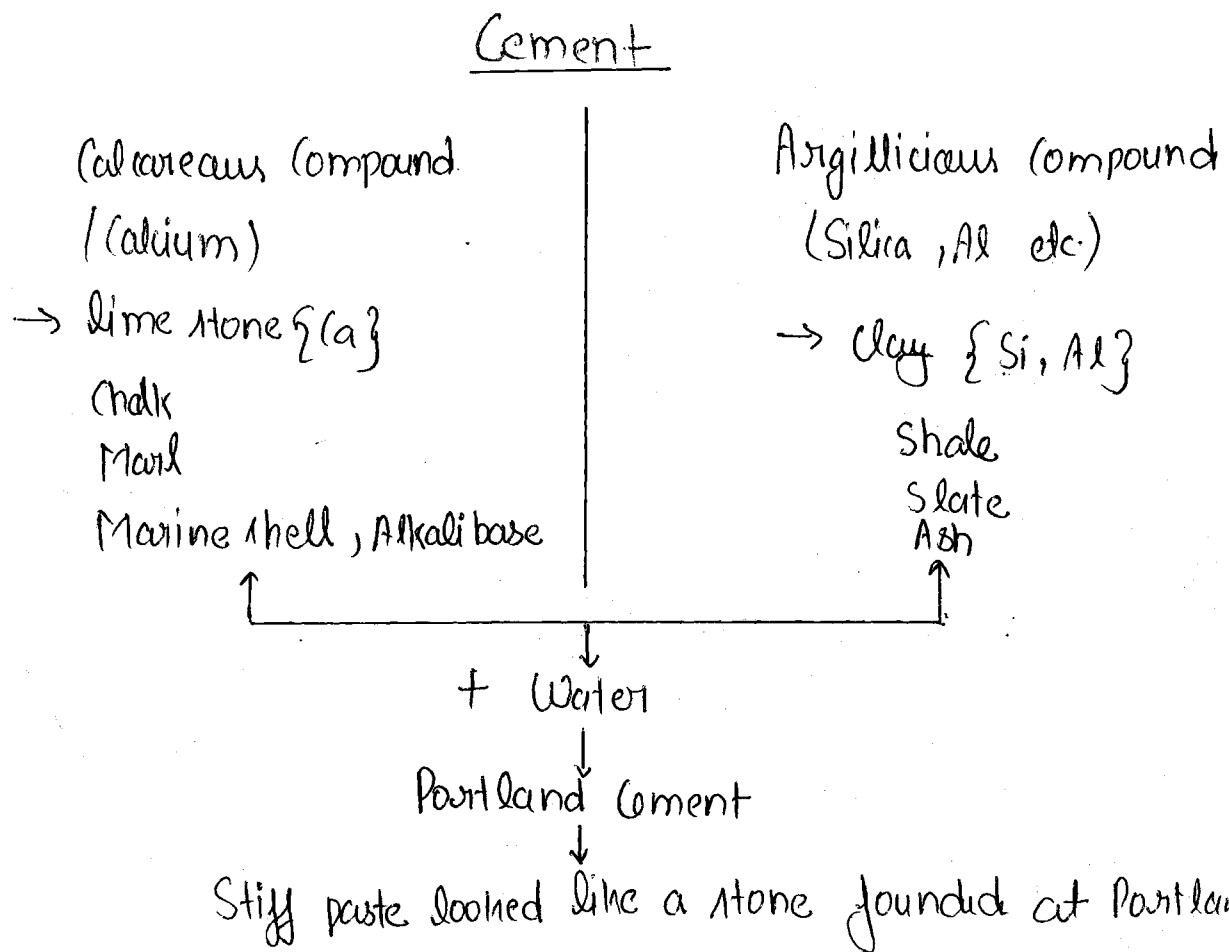 Cement
Calcareaus Compound
(Calcium)
→ lime stone {Ca}
Chalk
Marl
Marine shell, Alkali base
Argillicious Compound
(Silica, Al etc.)
→ Clay {Si, Al}
Shale
Slate
Ash
+ Water
Portland Cement
Stiff paste looked like a stone founded at Portla